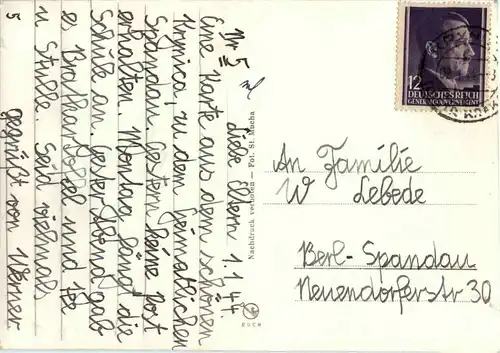 Nr 5
Liebe Eltern 1.1.44.
Eine Karte aus dem schönen
Krynica, zu dem heimatlichen
Spandau. Gestern keine Post
erhalten. Montag fängt die
Schule an. Gester Abend gab
es Bratkartoffel und Tee
u Stulle. Seid vielmals
gegrüßt von Werner
5
Nachdruck verboten — Fot. St. Mucha
12
DEUTSCHES REICH
GENERALGOUVERNEMENT
An Familie
W Lebede
Berl-Spandau
Neuendorferstr 30